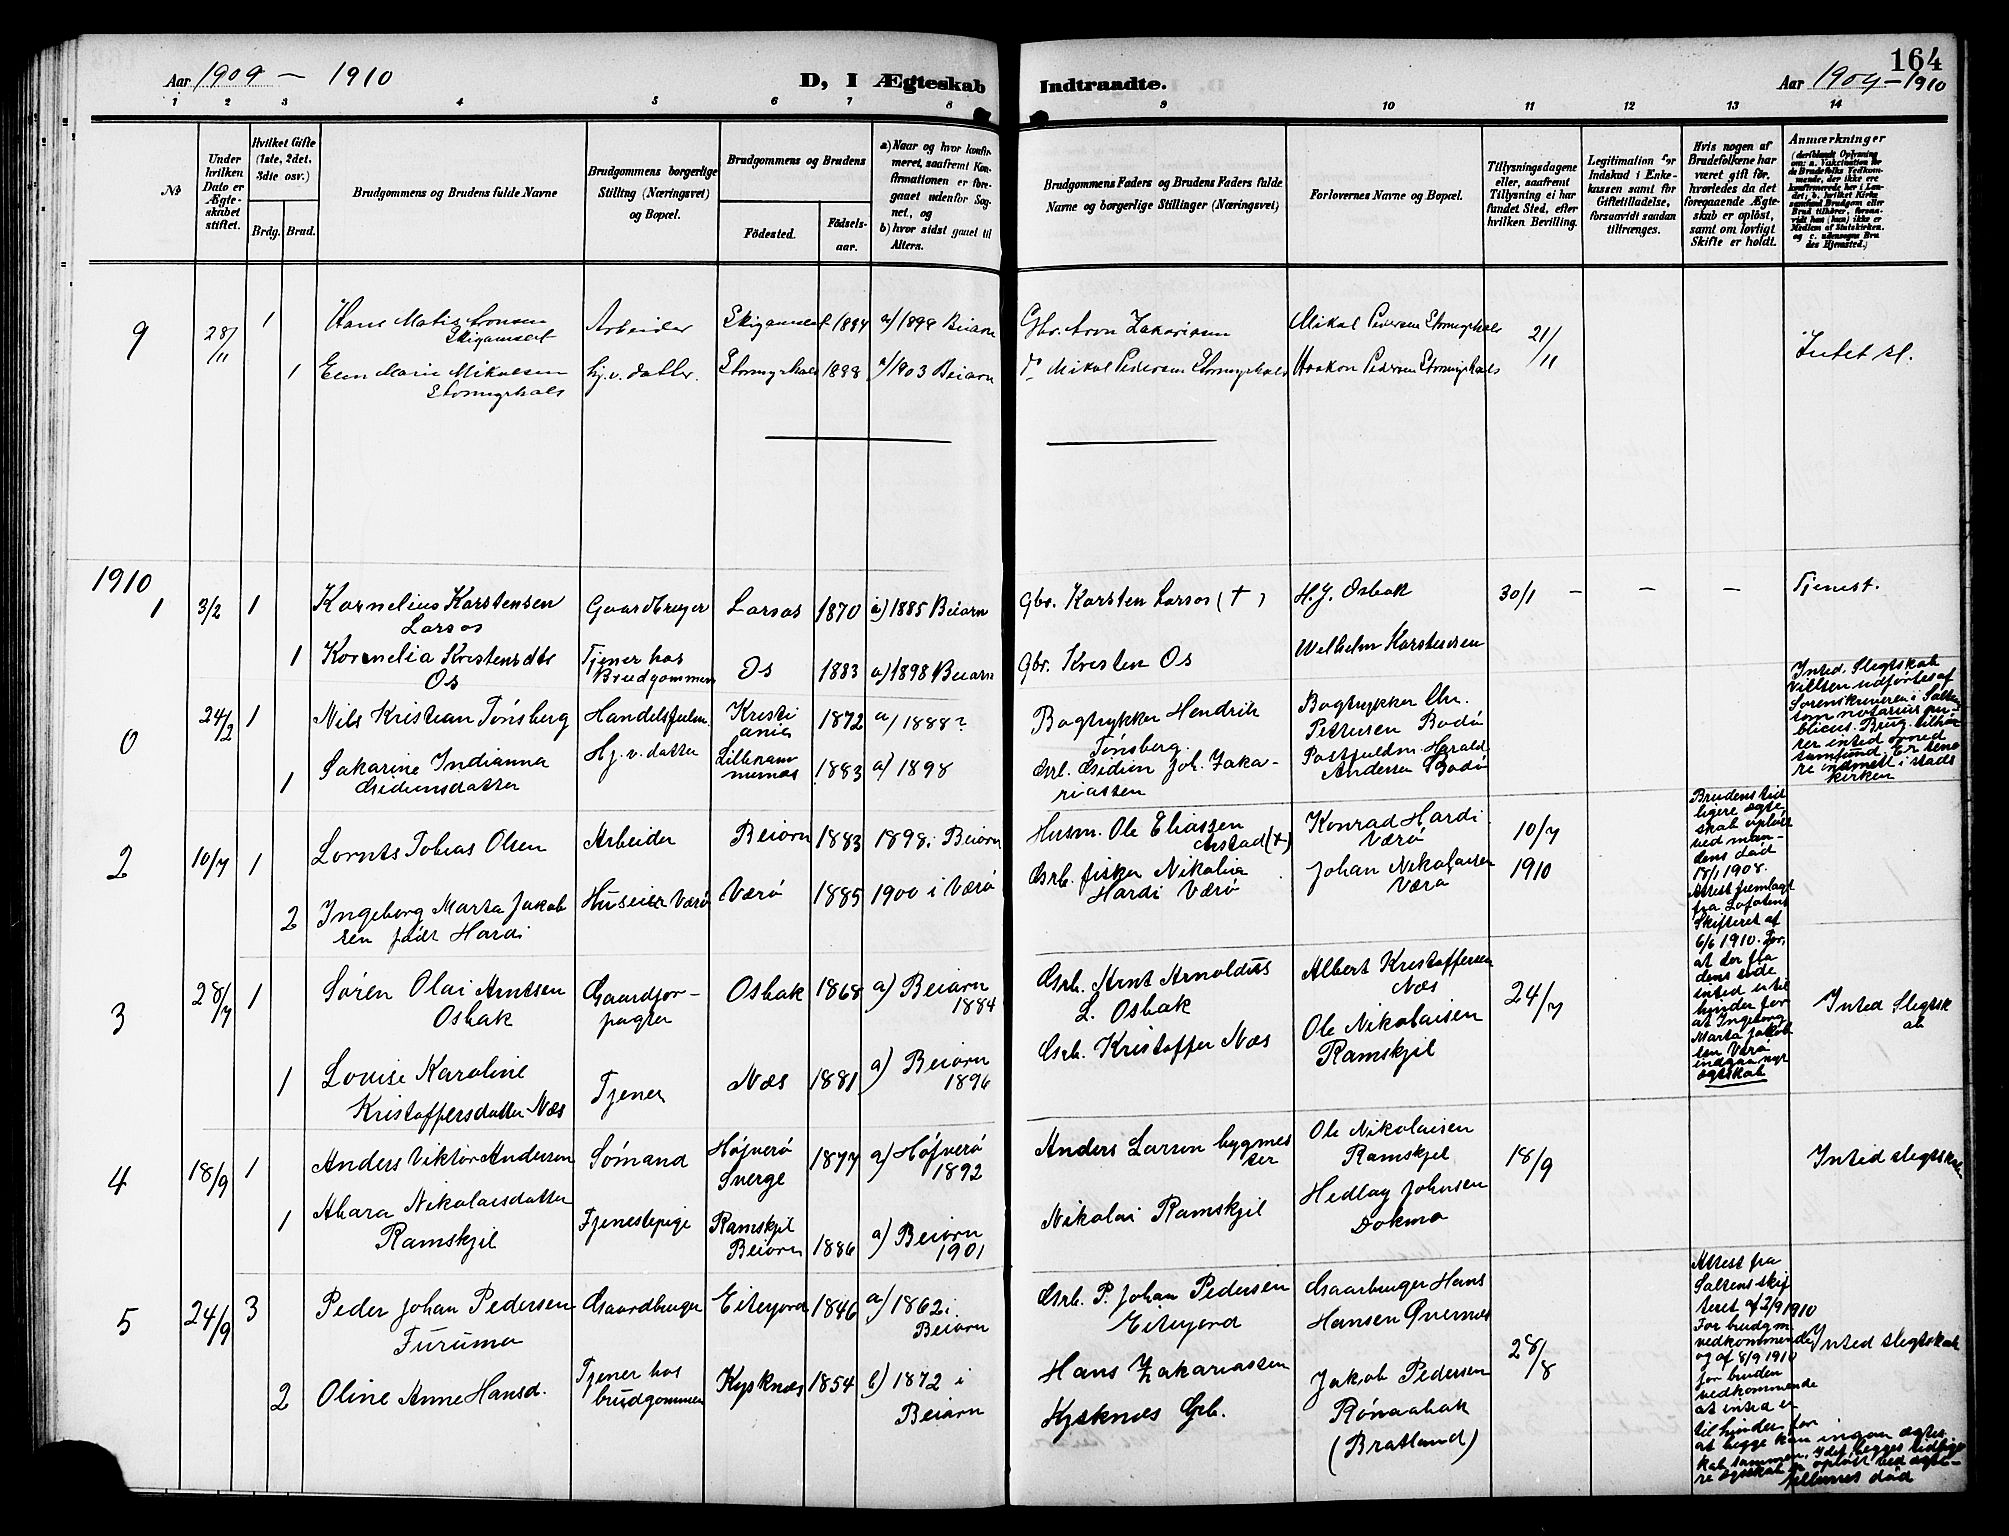 164
Aar 1909 - 1910
D, I Ægteskab
Indtraadte.
Aar 1909 - 1910
1 2 3 4 5 6 7 8 9 10 11 12 13 14
No
Under hvilken Dato er Ægteskabet stiftet.
Hvilket Gifte (1ste, 2det, 3die osv.)
Brdg. Brud.
Brudgommens og Brudens fulde Navne
Brudgommens borgerlige Stilling (Næringsvei) og Bopæl.
Brudgommens og Brudens
Födested.
Födselsaar.
a) Naar og hvor konfirmeret, saafremt Konfirmationen er foregaaet udenfor Sognet, og
b) hvor sidst gaaet til Alters.
Brudgommens Faders og Brudens Faders fulde Navne og borgerlige Stillinger (Næringsvei)
Forlovernes Navne og Bopæl.
Tillysningsdagene eller, saafremt Tillysning ei har fundet Sted, efter hvilken Bevilling.
Legitimation for Indskud i Enkekassen samt for Giftetilladelse, forsaavidt saadan tiltrænges.
Hvis nogen af Brudefolkene har været gift för, hvorledes da det foregaaende Ægteskab er oplöst, samt om lovligt Skifte er holdt.
Anmærkninger
9
28/11
1
Arbeider
a) 1898 Beiarn
21/11
Intet sl.
1
Elen Marie Mikalsen
1903 Beiarn
Mikal Pedersen
Haakon Pedersen
1910
1
3/2
1
Kornelius Karstensen
Larsos
Gaardbruger
Larsos
1870
a) 1885 Beiarn
Gbr. Karsten Larsos (+)
H. J. Osbak
30/1
-
-
-
Tjenest.
1
Kornelia Kristensdtr
Os
Tjener hos
Brudgommen
Os
1883
a) 1898 Beiarn
Gbr. Kristen Os
Wilhelm Karstensen
0
24/2
1
Nils Kristian Tønsberg
Handelsfuldm.
Kristi
ania
1872
a) 1888?
Bogtrykker Hendrik
Tønsberg.
Bogtrykker Chr.
Pettersen Bodø
Intet Slegtskab
Vielsen udførtes af
Sorenskriveren i Salten
som notarius pu-
blicus.
1
Sakarine Indianna
Gidionsdatter
Hj. v. datter
1883
a) 1898
Grb. Gidion Joh. Zaka-
riassen
Postfuldm. Harald
Andersen Bodø
2
10/7
1
Lornts Tobias Olsen
Arbeider
Beiarn
1883
1898 i Beiarn
Husm. Ole Eliassen
(+)
Konrad Hardi
Værø
10/7
1910
Brudens tid
ligere ægte
skab opløst
ved man-
dens død
18/1 1908.
Attest fremlagt
fra Lofotens
Skifteret af
6/6 1910.
intet er til
hinder for
at Ingeborg
Marta Jakob
sen Værø
indgaar nyt
ægtskab
2
Ingeborg Marta Jakob
sen født Hardi
Værø
Værø
1885
1900 i Værø
Grb. fisker Nikolai
Hardi Værø
Johan Nikolaisen
Værø
3
28/7
1
Søren Olai Arntsen
Osbak
Gaardfor-
pagter
Osbak
1868
a) Beiarn
1884
Grb. Arnt Arnoldus
L. Osbak
Albert Kristoffersen
Næs
24/7
Intid Slegtsk
ab
1
Lovise Karoline
Kristoffersdatter Næs
Tjener
Næs
1881
a) Beiarn
1896
Grb. Kristoffer Næs
Ole Nikolaisen
Ramskjil
4
18/9
1
Anders Viktor Anderson
Sømand
Højverø
Sverge
1877
a) Højverø
1892
Anders Larson bygmes
ter
Ole Nikolaisen
Ramskjel
18/9
Intid slegtskab
1
Nikolaisdatter
Ramskjel
Tjenestepige
Ramskjil
Beiarn
1886
a) Beiarn
1901
Nikolai Ramskjel
Hedlay Johnsen
Dokmo
5
24/9
3
Peder Johan Pedersen
Furumo
Gaardbruger
Eiterjord
1846
a) 1862 i
Beiarn
Grb. P. Johan Pedersen
Eiterjord
Gaarbruger Hans
Hansen Qvernes
28/8
Attest fra
Saltens skif
teret af 2/9 1910
For brudgm
vedkommende
og af 8/9 1910
for bruden
vedkommende
at intid er
til hinder for
at begge kan ingaa ægte
skab sammen,
Intid slegtskab
2
Oline Anne Hansd.
Tjener hos
brudgommen
Kysknæs
1854
b) 1872 i
Beiarn
Hans Zakariassen
Kysknæs Grb.
Jakob Pedersen
Rønaabak
(Bratland)